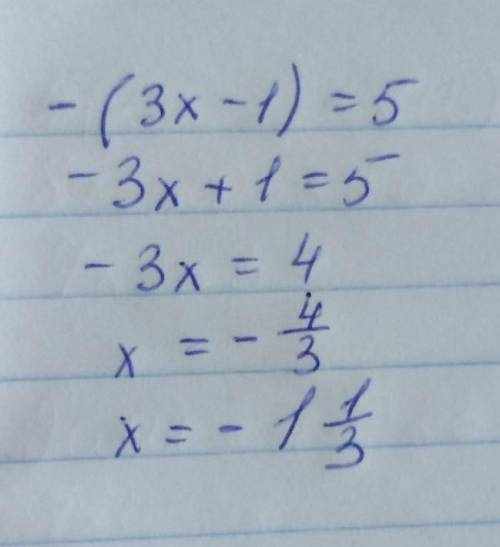 -(3x-1)=5
-3x+1=5
-3x=4
x=-4/3
x=-1 1/3